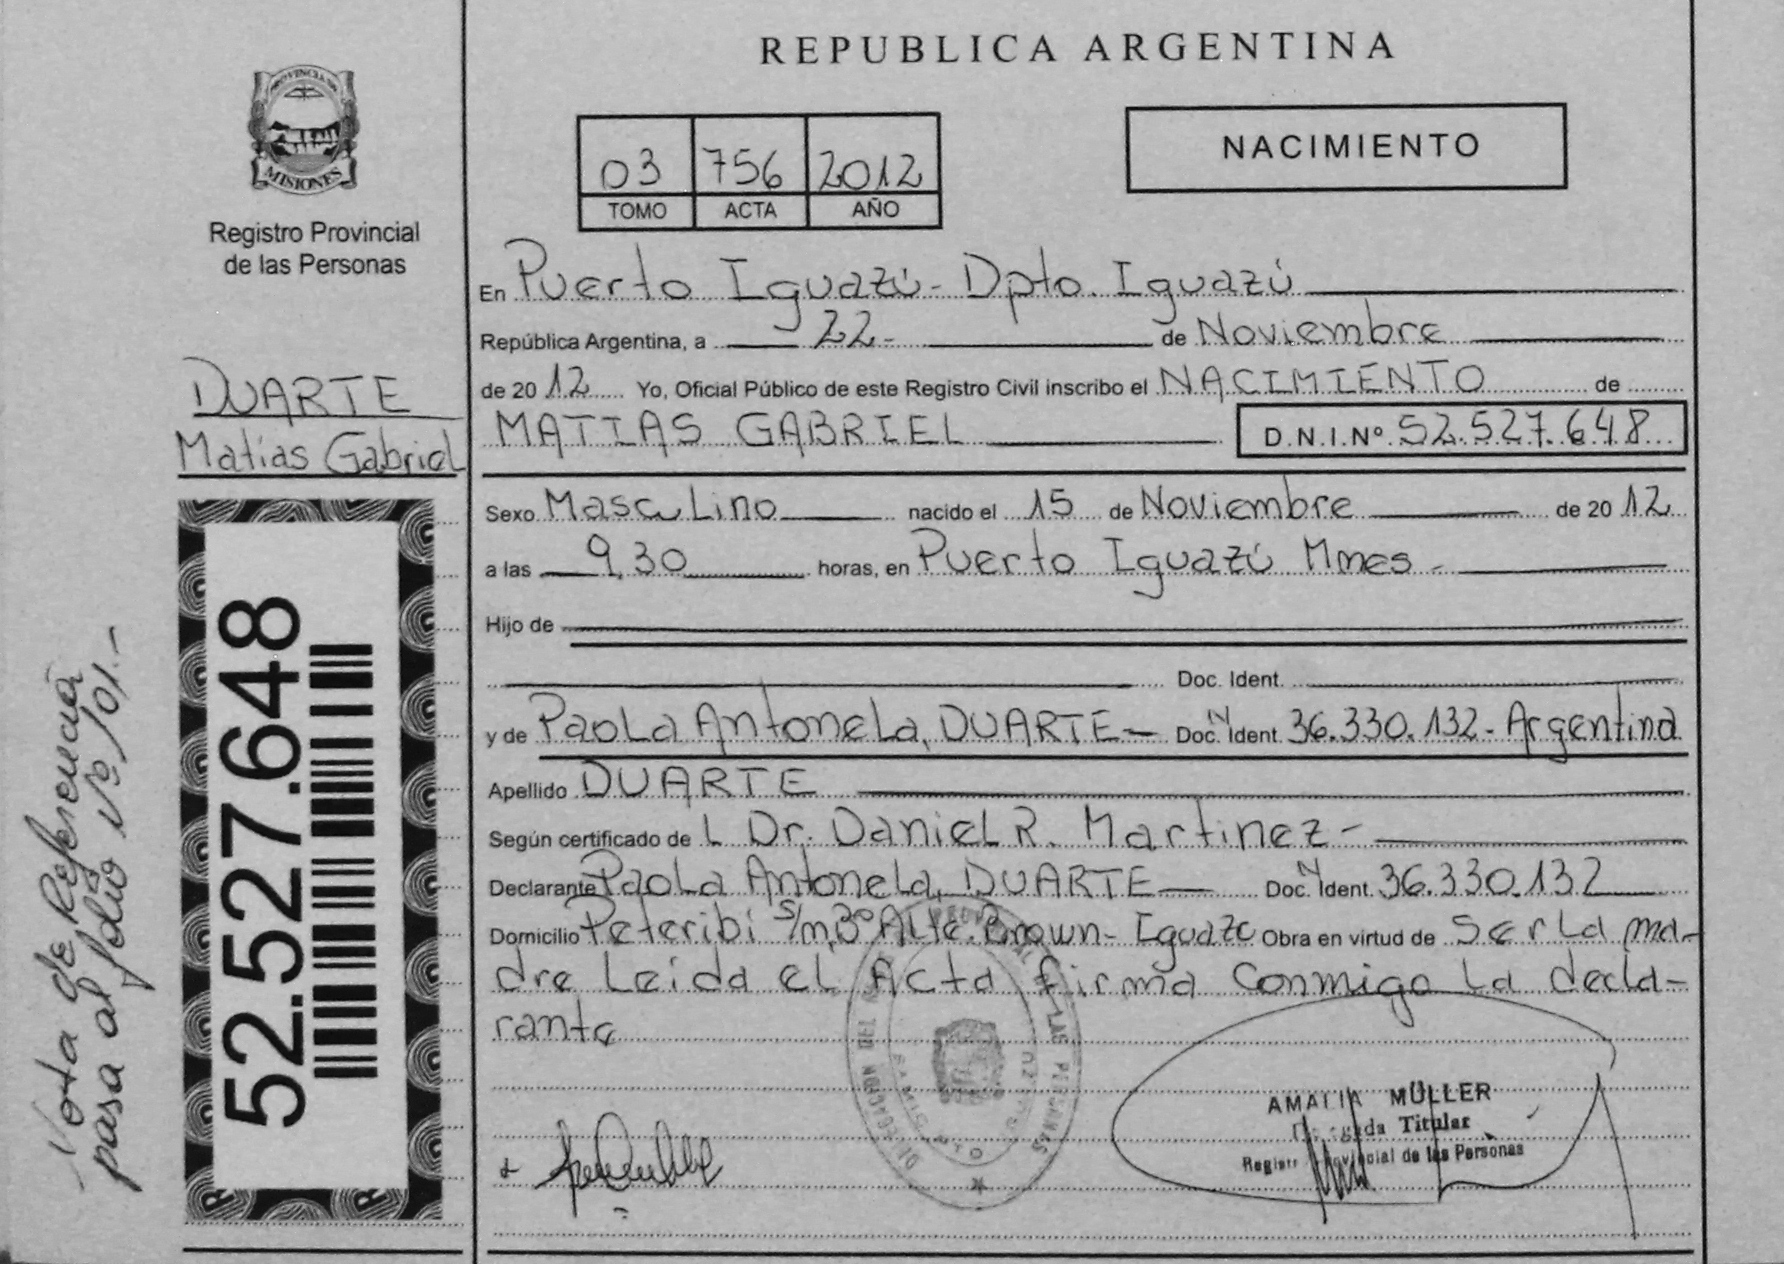 REPUBLICA ARGENTINA
PROVINCIA DE
MISIONES
Registro Provincial
de las Personas
03 756 2012
TOMO ACTA AÑO
NACIMIENTO
En Puerto Iguazú - Dpto. Iguazú
República Argentina, a 22- de Noviembre
de 2012 Yo, Oficial Público de este Registro Civil inscribo el NACIMIENTO de
MATIAS GABRIEL D.N.I.Nº 52.527.648
DUARTE
Matías Gabriel
52.527.648
Nota de Referencia
pasa al folio Nº 101.-
Sexo Masculino nacido el 15 de Noviembre de 2012
a las 9,30 horas, en Puerto Iguazú Mnes -
Hijo de
Doc. Ident.
y de Paola Antonela, DUARTE - Doc. N Ident. 36.330.132 - Argentina
Apellido DUARTE
Según certificado de L Dr. Daniel R. Martinez -
Declarante Paola Antonela, DUARTE - Doc. N Ident. 36.330.132
Domicilio Peteribi s/n, Bº Alte. Brown - Iguazú Obra en virtud de ser La ma-
dre Leida el Acta firma conmigo La decla-
rante
DELEGACION DEL REG. PROVINCIAL DE LAS PERSONAS
AMALIA MÜLLER
Delegada Titular
Registro Provincial de las Personas